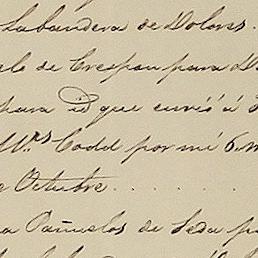 La bandera de Dolores.
de Crespon para D
para id que envió á
Mrs Codd por mi 6.
Octubre ........
a Pañuelos de Seda pa